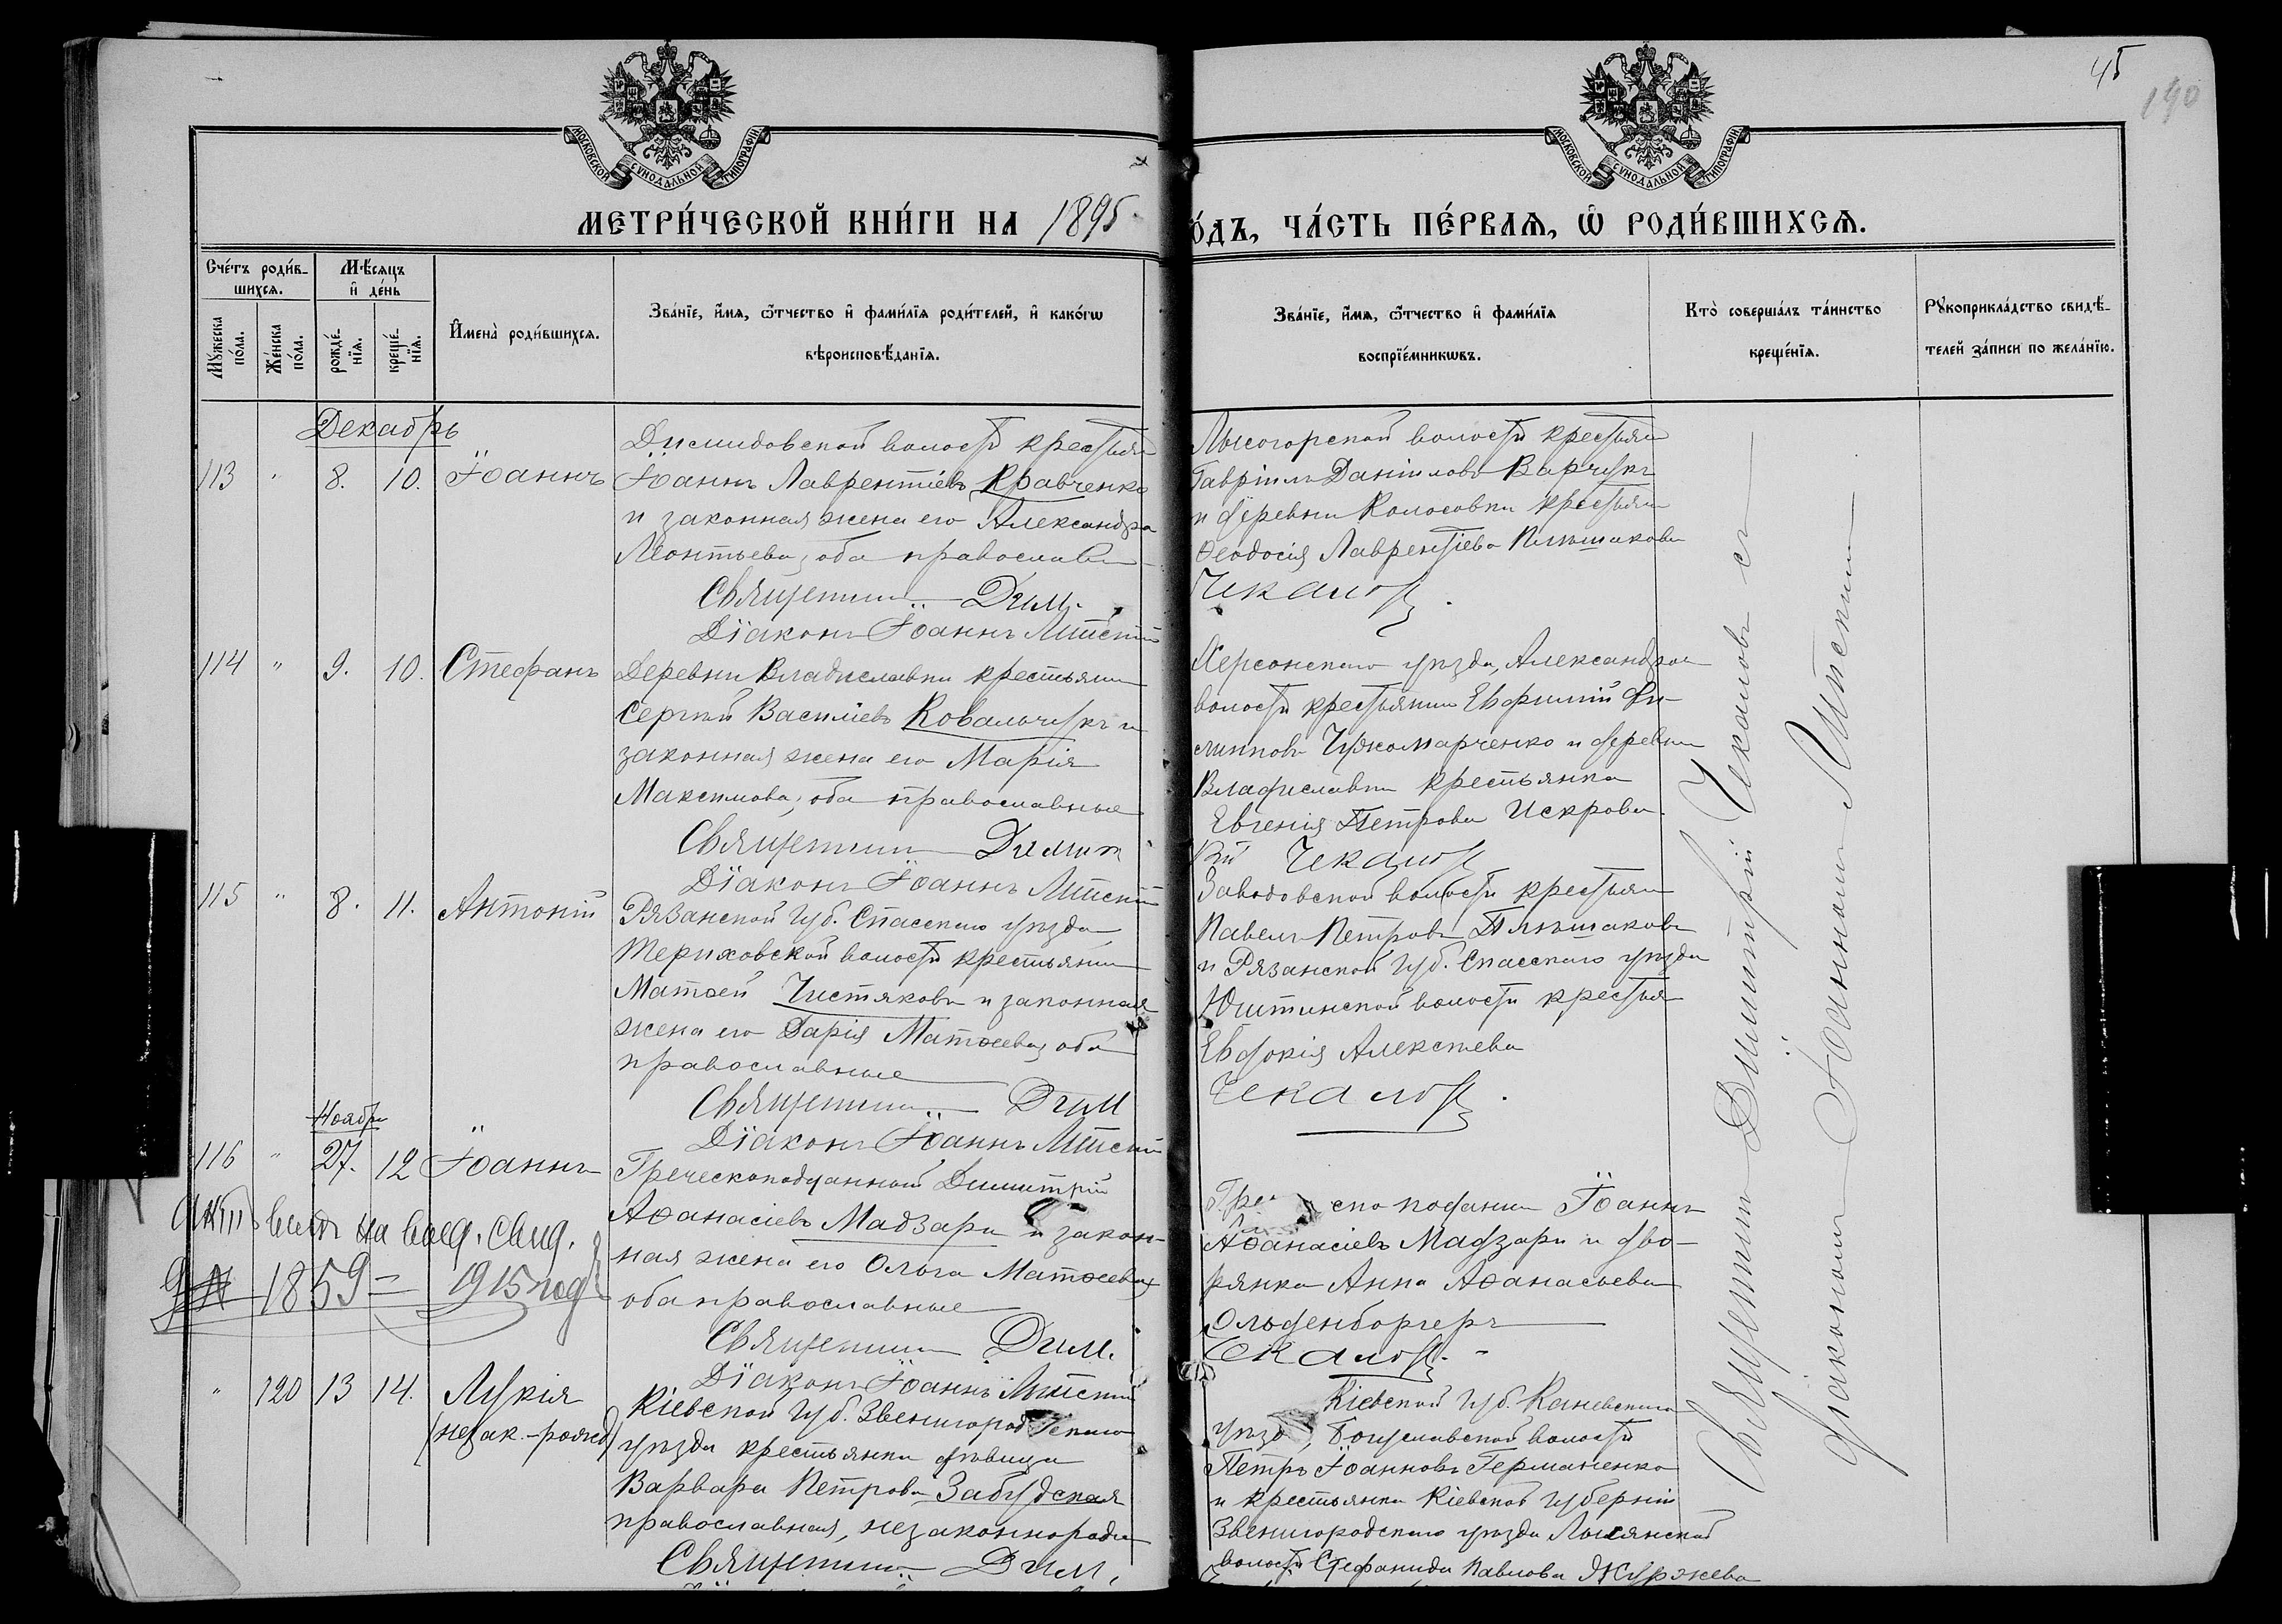 45
190
МОСКОВСКОЙ СѴНОДАЛЬНОЙ ТИПОГРАФІИ
МОСКОВСКОЙ СѴНОДАЛЬНОЙ ТИПОГРАФІИ
МЕТРИ́ЧЕСКОЙ КНИ́ГИ НА 1895
О́ДЪ, ЧА́СТЬ ПЕ́РВАѦ, Ѡ҆ РОДИ́ВШИХСѦ.
Сче́тъ роди́в-шихсѧ.
Мѣ́сѧцъ и҆ де́нь
Мꙋ́жеска по́ла.
Же́нска по́ла.
рожде́нїѧ.
креще́нїѧ.
И҆мена̀ роди́вшихсѧ.
Зва́нїе, и҆́мѧ, ѻ҆́тчество и҆ фами́лїѧ роди́телей, и҆ како́гѡ
вѣроисповѣ́данїѧ.
Зва́нїе, и҆́мѧ, ѻ҆́тчество и҆ фами́лїѧ
воспрїе́мникѡвъ.
Кто̀ соверша́лъ та́инство
креще́нїѧ.
Рꙋкоприкла́дство свидѣ́-
телей за́писи по жела́нїю.
Декабрь
113 " 8. 10. Іоаннъ
Димидовской волости крестьян
Іоаннъ Лаврентіевъ Кравченко
и законная жена его Александра
Леонтьева, оба православн
Священник Дим.
Діаконъ Іоаннъ
Лысогорской волости крестьян
Гавріилъ Даниловъ Варчукъ
и деревни Колосовки крестьян
Феодосія Лаврентіева
Чекалов
114 " 9. 10. Стефанъ
Деревни Владиславки крестьянин
Сергій Василіевъ Ковальчукъ и
законная жена его Марія
Максимова, оба православные
Священник Димит
Діаконъ Іоаннъ
Херсонскаго уѣзда, Александров
волости крестьянин Евфимій Фи-
липповъ Чужомарченко и деревни
Владиславки крестьянка
Евгенія Петрова Искрова.
Чекалов
115 " 8. 11. Антоній
Рязанской Губ. Спасскаго уѣзда
Териховской волости крестьянин
Матѳей Чистяковъ и законная
жена его Дарія Матѳеева, оба
православные
Священник Дим
Діаконъ Іоаннъ
Заводовской волости крестьян
Павелъ Петровъ
и Рязанской Губ. Спасскаго уѣзда
волости крестьян
Евдокія Алексѣева
Чекалов
Ноября
116 " 27. 12 Іоаннъ
Греческоподданный Димитрій
Аѳанасіевъ Мадзари и закон-
ная жена его Ольга Матѳеева,
оба православные
Священник Дим.
Діаконъ Іоаннъ
Іоаннъ
Аѳанасіевъ Мадзари и дво-
рянка Анна Аѳанасьева
Ольденборгеръ
Чекалов.
на
1859 = 1915 год
" 120 13 14. Лукія
(незак.-рожд)
Кіевской Губ. Звенигородскаго
уѣзда крестьянка дѣвица
Варвара Петрова Забудская
православная, незаконнорожд
Священник Дим.
Кіевской Губ. Каневскаго
уѣзда, Богуславской волости
Петръ Іоанновъ Германенко
и крестьянка Кіевской Губерніи
Звенигородскаго уѣзда Лысянской
волости Стефанида Павлова
Священник Димитрій Чекаловъ съ
діакономъ Іоанномъ